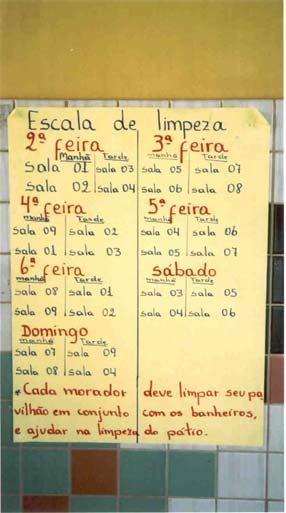 Escala de limpeza
2ª feira 3ª feira
Manhã Tarde manhã Tarde
Sala 01 sala 03 sala 05 sala 07
Sala 02 sala 04 sala 06 sala 08
4ª feira 5ª feira
manhã Tarde manhã Tarde
sala 09 sala 02 sala 04 sala 06
sala 01 sala 03 sala 05 sala 07
6ª feira Sábado
manhã Tarde manhã Tarde
sala 08 sala 01 sala 03 sala 05
sala 09 sala 02 sala 04 sala 06
Domingo
manhã Tarde
sala 07 sala 09
sala 08 sala 04
*Cada morador deve limpar seu pa
vilhão em conjunto com os banheiros,
e ajudar na limpeza do pátio.